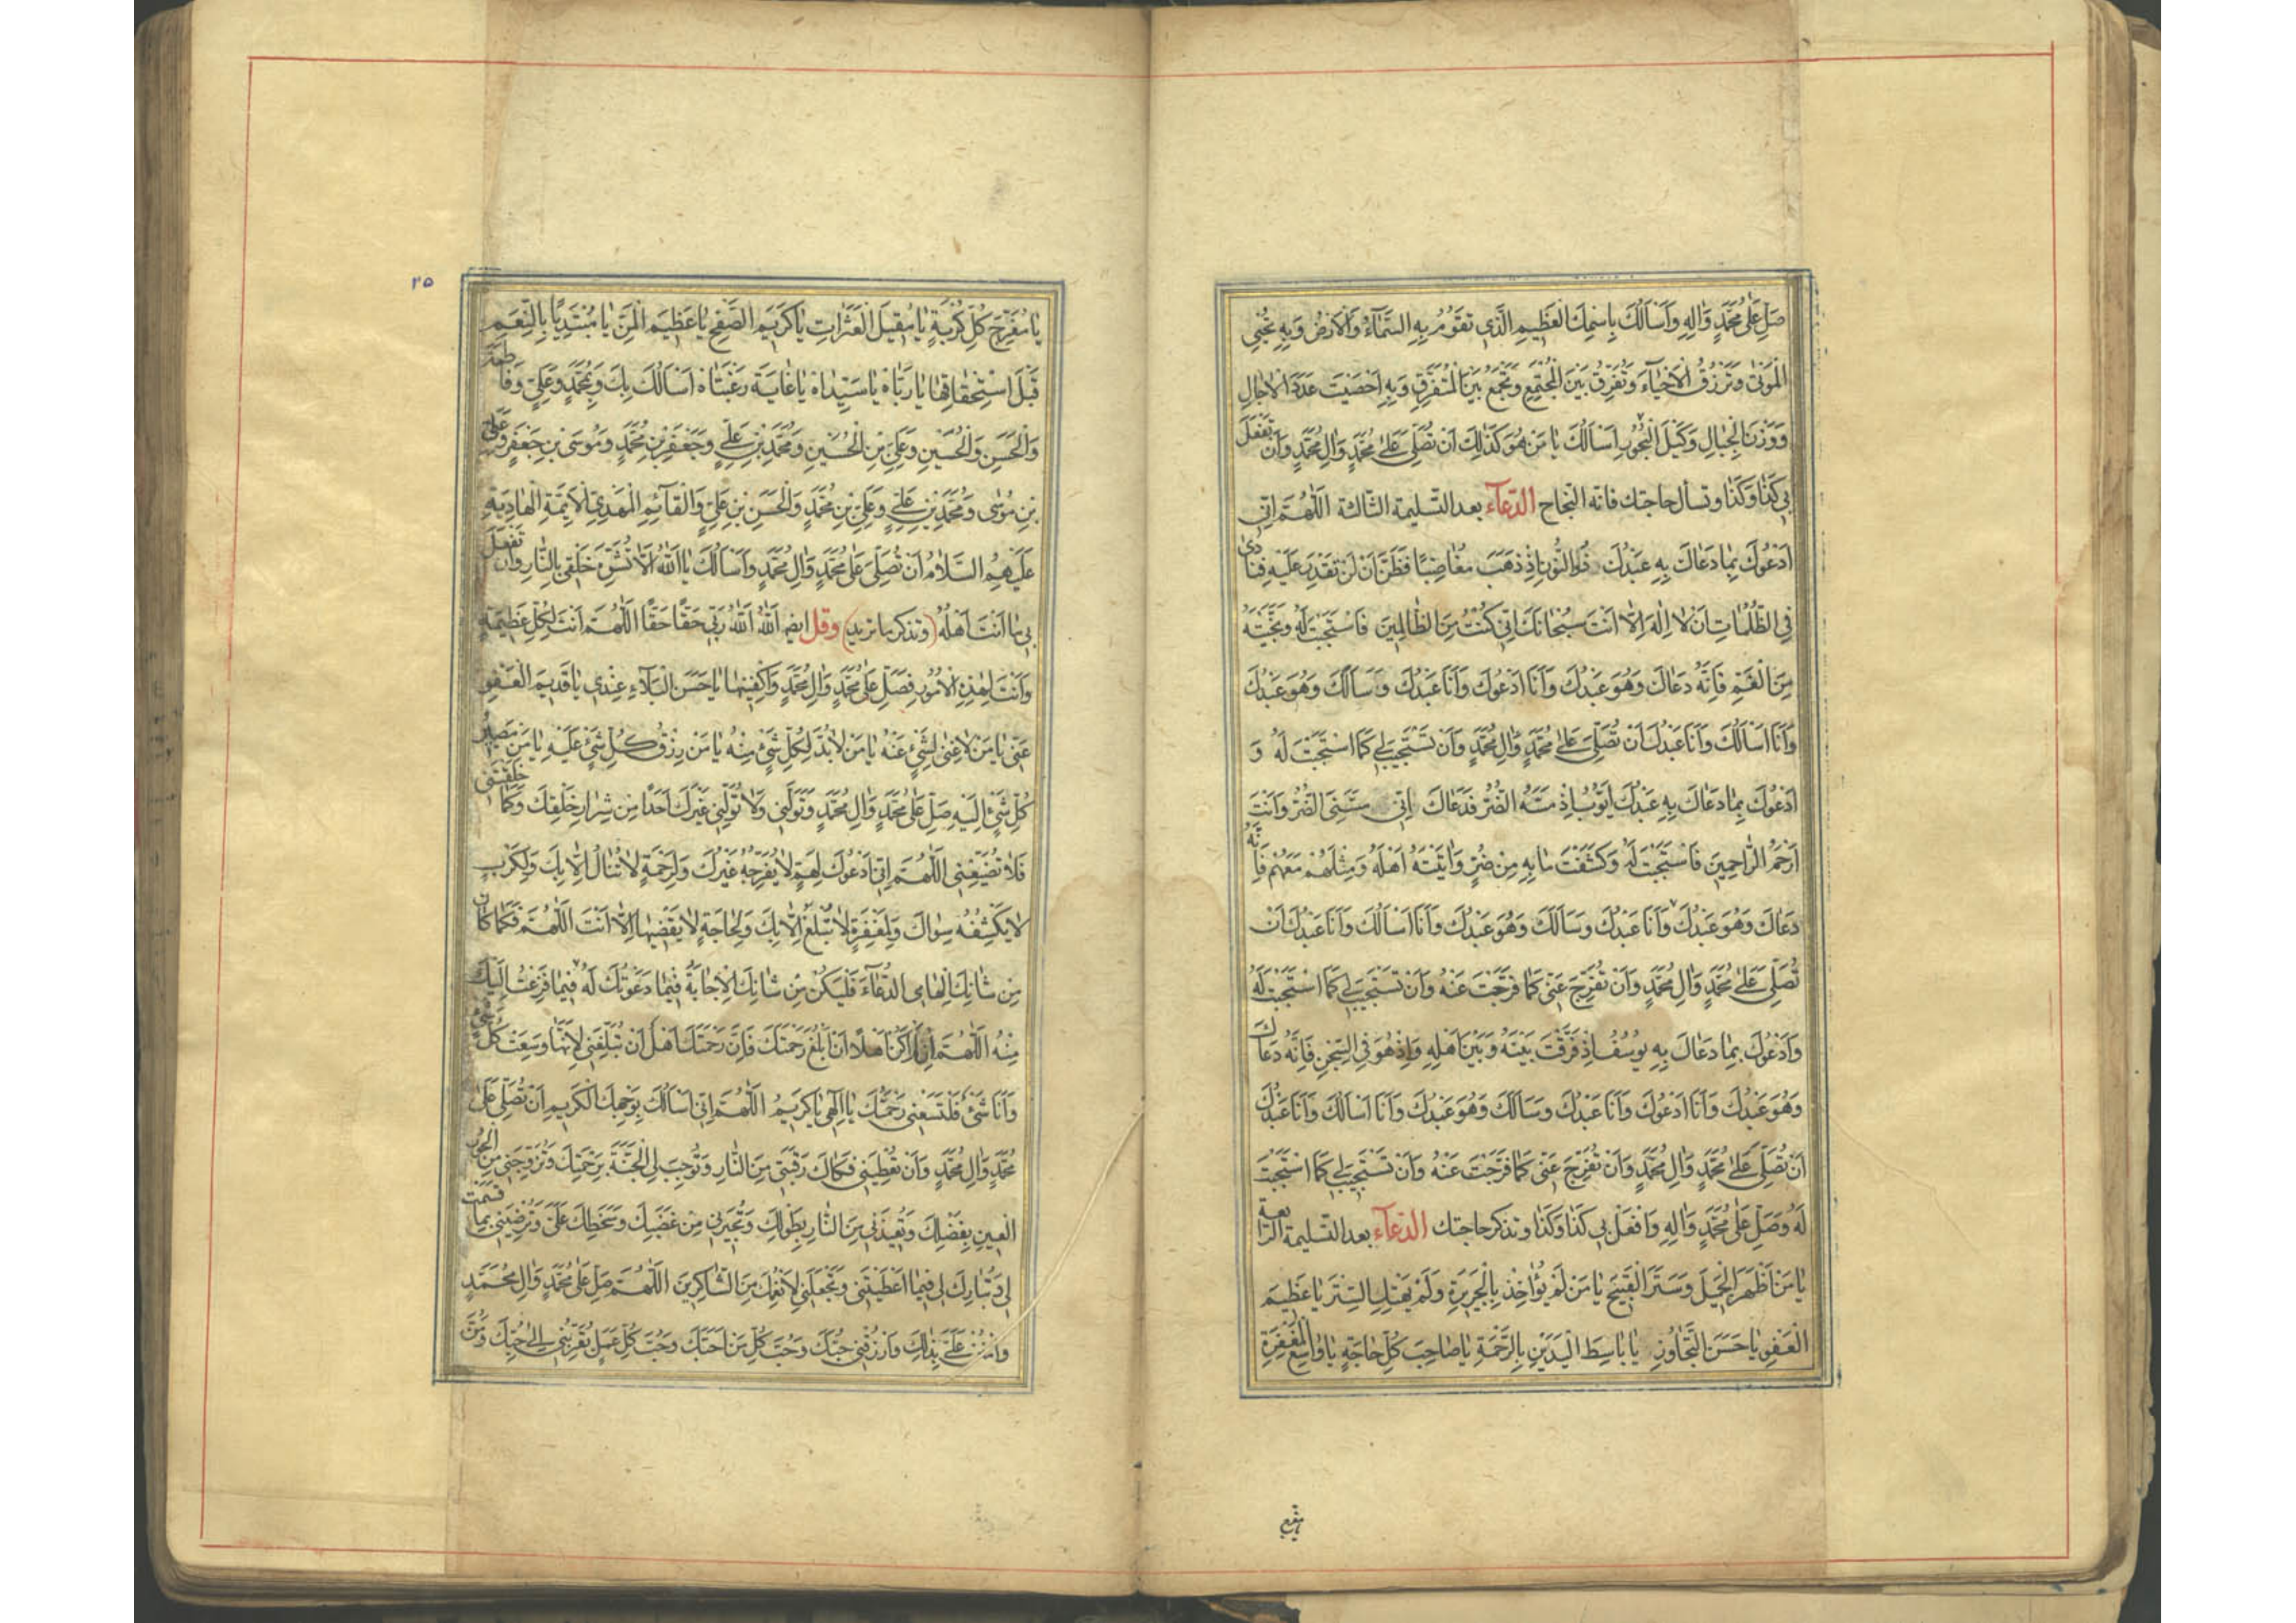 صَلِّ عَلٰى مُحَمَّدٍ وَاٰلِهِ وَاَسْاَلُكَ بِاسْمِكَ الْعَظِيمِ الَّذِي تَقُومُ بِهِ السَّمَآءُ وَالْاَرْضُ وَبِهِ تُحْيِي
الْمَوْتٰى وَتَرْزُقُ الْاَحْيَآءَ وَتُفَرِّقُ بَيْنَ الْمُجْتَمِعِ وَتَجْمَعُ بَيْنَ الْمُتَفَرِّقِ وَبِهِ اَحْصَيْتَ عَدَدَ الْاٰجَالِ
وَوَزْنَ الْجِبَالِ وَكَيْلَ الْبُحُورِ اَسْاَلُكَ يَا مَنْ هُوَ كَذٰلِكَ اَنْ تُصَلِّيَ عَلٰى مُحَمَّدٍ وَاٰلِ مُحَمَّدٍ وَاَنْ تَفْعَلَ
بِي كَذَا وَكَذَا وتسأل حاجتك فانه النجاح الدّعآء بعد التسليمة الثّالثة اَللّٰهُمَّ اِنِّي
اَدْعُوكَ بِمَا دَعَاكَ بِهِ عَبْدُكَ ذُو النُّونِ اِذْ ذَهَبَ مُغَاضِبًا فَظَنَّ اَنْ لَنْ تَقْدِرَ عَلَيْهِ فَنَادٰى
فِي الظُّلُمَاتِ اَنْ لَا اِلٰهَ اِلَّا اَنْتَ سُبْحَانَكَ اِنِّي كُنْتُ مِنَ الظَّالِمِينَ فَاسْتَجَبْتَ لَهُ وَنَجَّيْتَهُ
مِنَ الْغَمِّ فَاِنَّهُ دَعَاكَ وَهُوَ عَبْدُكَ وَاَنَا اَدْعُوكَ وَاَنَا عَبْدُكَ وَسَاَلَكَ وَهُوَ عَبْدُكَ
وَاَنَا اَسْاَلُكَ وَاَنَا عَبْدُكَ اَنْ تُصَلِّيَ عَلٰى مُحَمَّدٍ وَاٰلِ مُحَمَّدٍ وَاَنْ تَسْتَجِيبَ لِي كَمَا اسْتَجَبْتَ لَهُ وَ
اَدْعُوكَ بِمَا دَعَاكَ بِهِ عَبْدُكَ اَيُّوبُ اِذْ مَسَّهُ الضُّرُّ فَدَعَاكَ اِنِّي مَسَّنِيَ الضُّرُّ وَاَنْتَ
اَرْحَمُ الرَّاحِمِينَ فَاسْتَجَبْتَ لَهُ وَكَشَفْتَ مَا بِهِ مِنْ ضُرٍّ وَاٰتَيْتَهُ اَهْلَهُ وَمِثْلَهُمْ مَعَهُمْ فَاِنَّهُ
دَعَاكَ وَهُوَ عَبْدُكَ وَاَنَا عَبْدُكَ وَسَاَلَكَ وَهُوَ عَبْدُكَ وَاَنَا اَسْاَلُكَ وَاَنَا عَبْدُكَ اَنْ
تُصَلِّيَ عَلٰى مُحَمَّدٍ وَاٰلِ مُحَمَّدٍ وَاَنْ تُفَرِّجَ عَنِّي كَمَا فَرَّجْتَ عَنْهُ وَاَنْ تَسْتَجِيبَ لِي كَمَا اسْتَجَبْتَ لَهُ
وَاَدْعُوكَ بِمَا دَعَاكَ بِهِ يُوسُفُ اِذْ فَرَّقْتَ بَيْنَهُ وَبَيْنَ اَهْلِهِ وَاِذْ هُوَ فِي السِّجْنِ فَاِنَّهُ دَعَاكَ
وَهُوَ عَبْدُكَ وَاَنَا اَدْعُوكَ وَاَنَا عَبْدُكَ وَسَاَلَكَ وَهُوَ عَبْدُكَ وَاَنَا اَسْاَلُكَ وَاَنَا عَبْدُكَ
اَنْ تُصَلِّيَ عَلٰى مُحَمَّدٍ وَاٰلِ مُحَمَّدٍ وَاَنْ تُفَرِّجَ عَنِّي كَمَا فَرَّجْتَ عَنْهُ وَاَنْ تَسْتَجِيبَ لِي كَمَا اسْتَجَبْتَ
لَهُ وَصَلِّ عَلٰى مُحَمَّدٍ وَاٰلِهِ وَافْعَلْ بِي كَذَا وَكَذَا وتذكر حاجتك الدّعآء بعد التسليمة الرّابعة
يَا مَنْ اَظْهَرَ الْجَمِيلَ وَسَتَرَ الْقَبِيحَ يَا مَنْ لَمْ يُؤَاخِذْ بِالْجَرِيرَةِ وَلَمْ يَهْتِكِ السِّتْرَ يَا عَظِيمَ
الْعَفْوِ يَا حَسَنَ التَّجَاوُزِ يَا بَاسِطَ الْيَدَيْنِ بِالرَّحْمَةِ يَا صَاحِبَ كُلِّ حَاجَةٍ يَا وَاسِعَ الْمَغْفِرَةِ
يا مفرج
٢٥
يَا مُفَرِّجَ كُلِّ كُرْبَةٍ يَا مُقِيلَ الْعَثَرَاتِ يَا كَرِيمَ الصَّفْحِ يَا عَظِيمَ الْمَنِّ يَا مُبْتَدِئًا بِالنِّعَمِ
قَبْلَ اسْتِحْقَاقِهَا يَا رَبَّاهُ يَا سَيِّدَاهُ يَا غَايَةَ رَغْبَتَاهُ اَسْاَلُكَ بِكَ وَبِمُحَمَّدٍ وَعَلِيٍّ وَفَاطِمَةَ
وَالْحَسَنِ وَالْحُسَيْنِ وَعَلِيِّ بْنِ الْحُسَيْنِ وَمُحَمَّدِ بْنِ عَلِيٍّ وَجَعْفَرِ بْنِ مُحَمَّدٍ وَمُوسَى بْنِ جَعْفَرٍ وَعَلِيِّ
بْنِ مُوسٰى وَمُحَمَّدِ بْنِ عَلِيٍّ وَعَلِيِّ بْنِ مُحَمَّدٍ وَالْحَسَنِ بْنِ عَلِيٍّ وَالْقَآئِمِ الْمَهْدِيِّ الْاَئِمَّةِ الْهَادِيَةِ
عَلَيْهِمُ السَّلَامُ اَنْ تُصَلِّيَ عَلٰى مُحَمَّدٍ وَاٰلِ مُحَمَّدٍ وَاَسْاَلُكَ يَا اَللّٰهُ اَلَّا تُشَوِّهَ خَلْقِي بِالنَّارِ وَاَنْ تَفْعَلَ
بِي مَا اَنْتَ اَهْلُهُ (وتذكر ما تريد) وقل ايضا اَللّٰهُ اَللّٰهُ رَبِّي حَقًّا حَقًّا اَللّٰهُمَّ اَنْتَ لِكُلِّ عَظِيمَةٍ
وَاَنْتَ لِهٰذِهِ الْاُمُورِ فَصَلِّ عَلٰى مُحَمَّدٍ وَاٰلِ مُحَمَّدٍ وَاكْفِنِيهَا يَا حَسَنَ الْبَلَآءِ عِنْدِي يَا قَدِيمَ الْعَفْوِ
عَنِّي يَا مَنْ لَا غِنٰى لِشَيْءٍ عَنْهُ يَا مَنْ لَا بُدَّ لِكُلِّ شَيْءٍ مِنْهُ يَا مَنْ رِزْقُ كُلِّ شَيْءٍ عَلَيْهِ يَا مَنْ مَصِيرُ
كُلِّ شَيْءٍ اِلَيْهِ صَلِّ عَلٰى مُحَمَّدٍ وَاٰلِ مُحَمَّدٍ وَتَوَلَّنِي وَلَا تُوَلِّنِي غَيْرَكَ اَحَدًا مِنْ شِرَارِ خَلْقِكَ وَكَمَا خَلَقْتَنِي
فَلَا تُضَيِّعْنِي اَللّٰهُمَّ اِنِّي اَدْعُوكَ لِهَمٍّ لَا يُفَرِّجُهُ غَيْرُكَ وَلِرَحْمَةٍ لَا تُنَالُ اِلَّا بِكَ وَلِكَرْبٍ
لَا يَكْشِفُهُ سِوَاكَ وَلِمَغْفِرَةٍ لَا تُبْلَغُ اِلَّا بِكَ وَلِحَاجَةٍ لَا يَقْضِيهَا اِلَّا اَنْتَ اَللّٰهُمَّ فَكَمَا كَانَ
مِنْ شَانِكَ اِلْهَامِي الدُّعَآءَ فَلْيَكُنْ مِنْ شَانِكَ الْاِجَابَةُ فِيمَا دَعَوْتُكَ لَهُ فِيمَا فَزِعْتُ اِلَيْكَ
مِنْهُ اَللّٰهُمَّ اِنْ لَمْ اَكُنْ اَهْلًا اَنْ اَبْلُغَ رَحْمَتَكَ فَاِنَّ رَحْمَتَكَ اَهْلٌ اَنْ تُبَلِّغَنِي لِاَنَّهَا وَسِعَتْ كُلَّ شَيْءٍ
وَاَنَا شَيْءٌ فَلْتَسَعْنِي رَحْمَتُكَ يَا اِلٰهِي يَا كَرِيمُ اَللّٰهُمَّ اِنِّي اَسْاَلُكَ بِوَجْهِكَ الْكَرِيمِ اَنْ تُصَلِّيَ عَلٰى
مُحَمَّدٍ وَاٰلِ مُحَمَّدٍ وَاَنْ تُعْطِيَنِي فَكَاكَ رَقَبَتِي مِنَ النَّارِ وَتُوجِبَ لِيَ الْجَنَّةَ بِرَحْمَتِكَ وَتُزَوِّجَنِي مِنَ الْحُورِ
الْعِينِ بِفَضْلِكَ وَتُعِيذَنِي مِنَ النَّارِ بِطَوْلِكَ وَتُجِيرَنِي مِنْ غَضَبِكَ وَسَخَطِكَ عَلَيَّ وَتُرْضِيَنِي بِمَا قَسَمْتَ
لِي وَتُبَارِكَ لِي فِيمَا اَعْطَيْتَنِي وَتَجْعَلَنِي لِاَنْعُمِكَ مِنَ الشَّاكِرِينَ اَللّٰهُمَّ صَلِّ عَلٰى مُحَمَّدٍ وَاٰلِ مُحَمَّدٍ
وَامْنُنْ عَلَيَّ بِذٰلِكَ وَارْزُقْنِي حُبَّكَ وَحُبَّ كُلِّ مَنْ اَحَبَّكَ وَحُبَّ كُلِّ عَمَلٍ يُقَرِّبُنِي اِلٰى حُبِّكَ وَمُنَّ